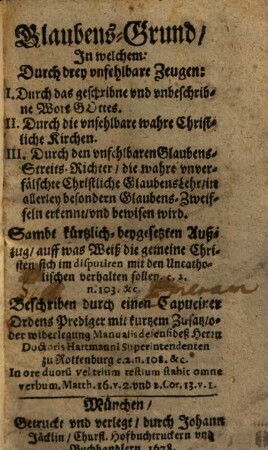 Glaubens-Grund/
In welchem:
Durch drey vnfehlbare Zeugen:
I. Durch das geschribne vnd vnbeschrib-
ne Wort GOttes.
II. Durch die vnfehlbare wahre Christ-
liche Kirchen.
III. Durch den vnfehlbaren Glaubens-
Streits-Richter/ die wahre vnver-
fälschte Christliche Glaubenslehr/ in
allerley besondern Glaubens-Zweif-
feln erkennt/ vnd bewisen wird.
Sambt kürtzlich-beygesetzten Auß-
zug/ auff was Weiß die gemeine Chri-
sten sich im disputiren mit den Uncatho-
lischen verhalten sollen. c. 2.
n. 103. &c.
Beschriben durch einen Capuciner
Ordens Prediger mit kurtzem Zusatz/ o-
der widerlegung Manualis defensi deß Herrn
Doctoris Hartmanni Superintendenten
zu Rottenburg c. 2. n. 108. &c.
In ore duorũ vel trium testium stabit omne
verbum. Matth. 16. v. 2. vnd 2. Cor. 13. v. 1.
München/
Getruckt vnd verlegt/ durch Johann
Jäcklin/ Churfl. Hofbuchtruckern vnd
Buchhandlern. 1678.